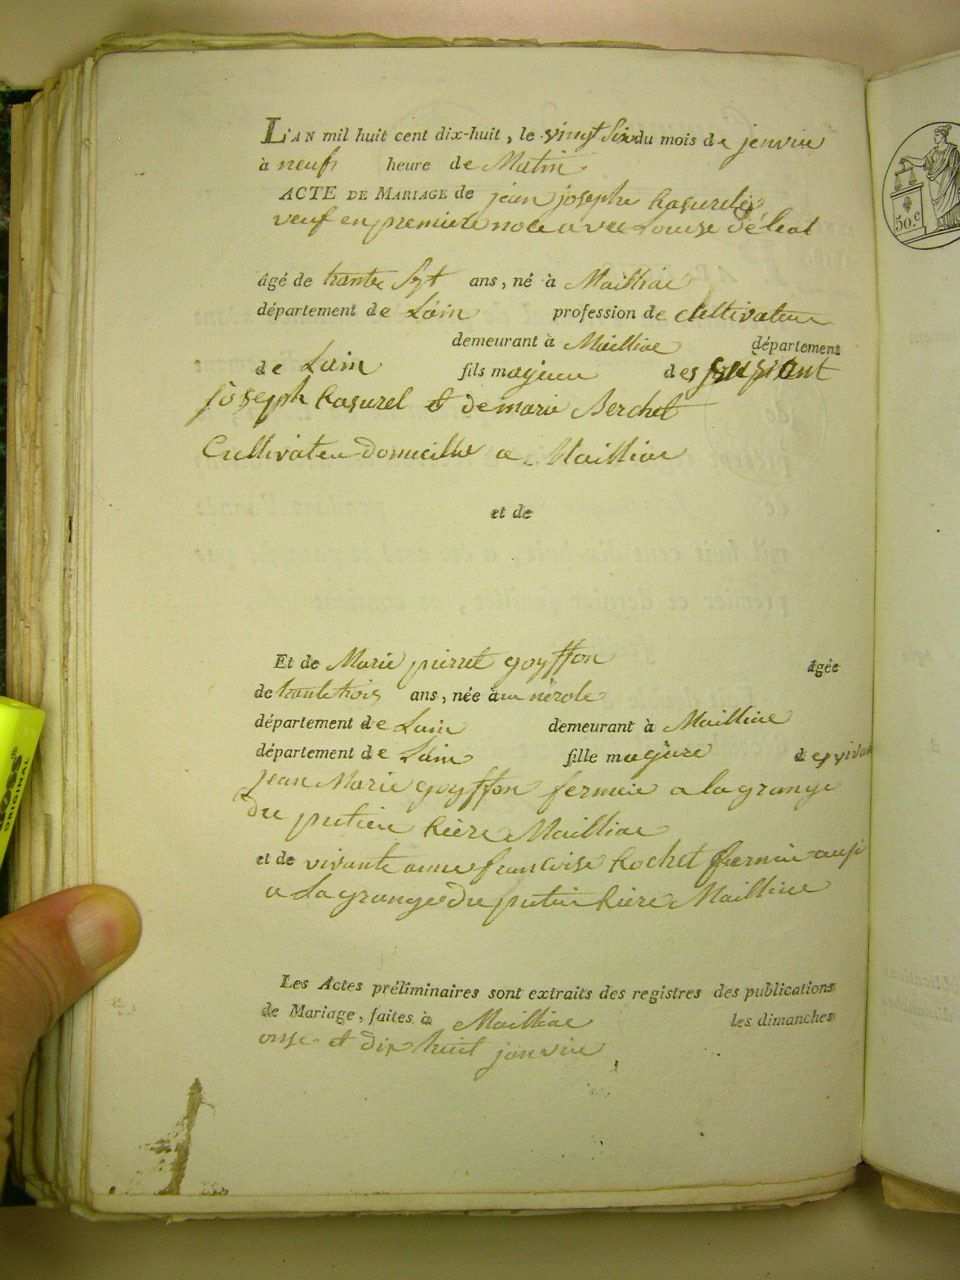 L'AN mil huit cent dix-huit, le vingt six du mois de jenvier
à neufs heure de Matin
ACTE DE MARIAGE de jean josephe Rasurel
veuf en premiere noce avec Louise
âgé de trante sept ans, né à Mailliac
département de Lain profession de cultivateur
demeurant à Mailliac département
de Lain fils majeur des
joseph Rasurel et de marie Berchet
Cultivateu domicillié a Mailliac
et de
Et de Marie pierret goyffon âgée
de trante trois ans, née à nerole
département de Lain demeurant à Mailliac
département de Lain fille majure de vivan
jean Marie goyffon fermie a la grange
du putier Riere Mailliac
et de vivante anne francoise Rochet fermie ausi
a La grange du putier Riere Mailliac
Les Actes préliminaires sont extraits des registres des publications
de Mariage, faites à Mailliac les dimanches
onse et dix huit janvier
50.c
BOSS
ORIGINAL